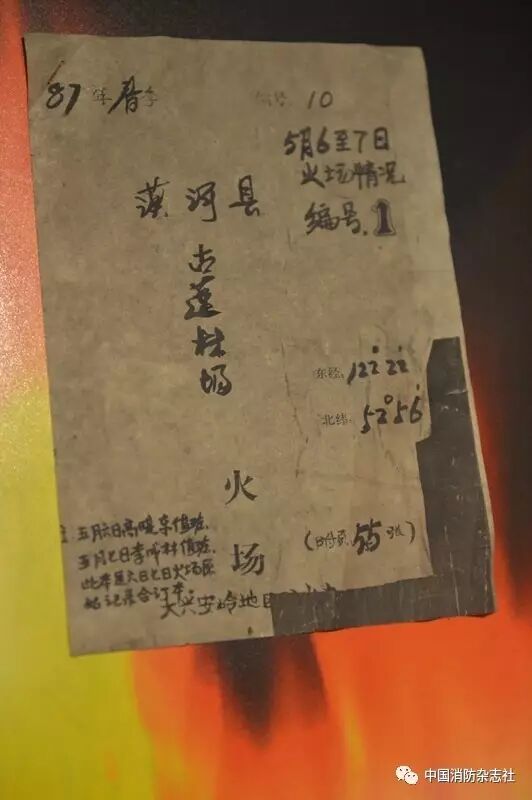 87年春季
编号 10
5月6至7日
火场情况
编号.1
漠河县
古莲林场
东经:122°22′
北纬:52°56′
火场
(附页55张)
五月六日高晓东值班.
五月七日李 林值班.
此本是六日七日火场原
始记录合订本.
大兴安岭地区
中国消防杂志社